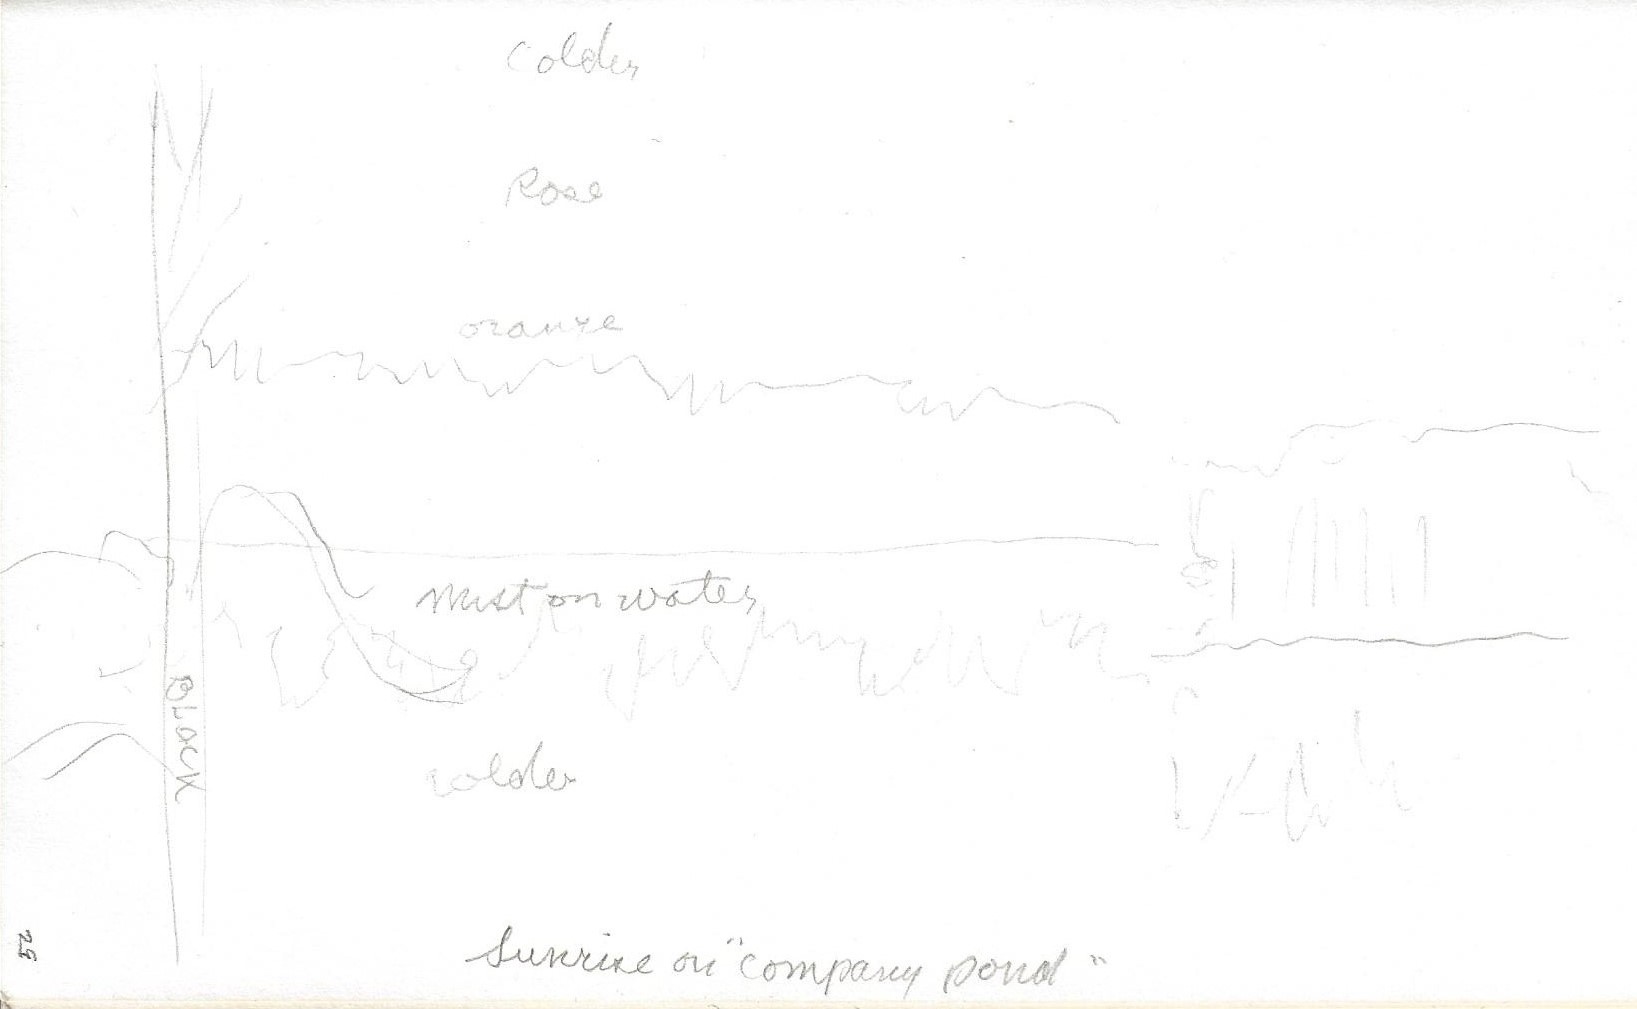 Colder
Rose
orange
mist on water
BLACK
colder
Sunrise on "company pond"
29